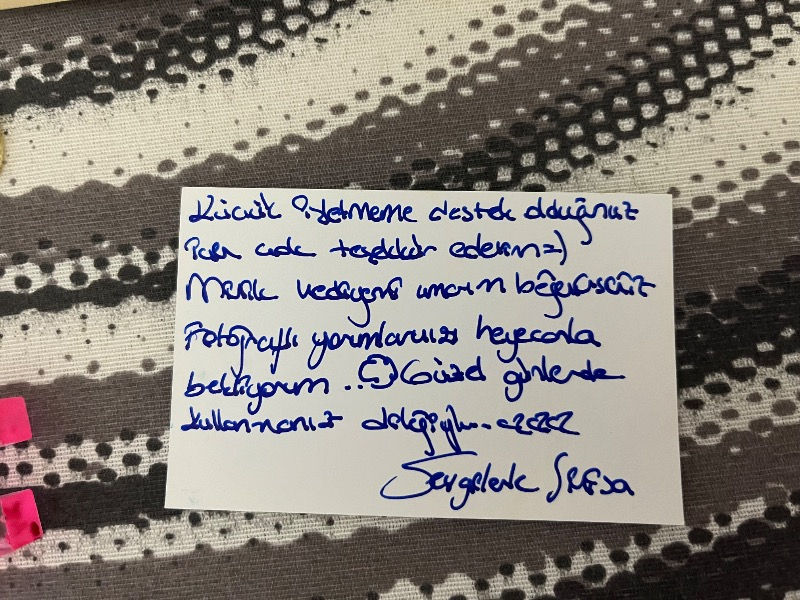 Küçük işletmeme destek olduğunuz
için çok teşekkür ederim :)
Minik hediyemi umarım beğenirsiniz
Fotoğraflı yorumlarınızı heyecanla
bekliyorum .. Güzel günlerde
kullanmanız dileğiyle...
Sevgilerle